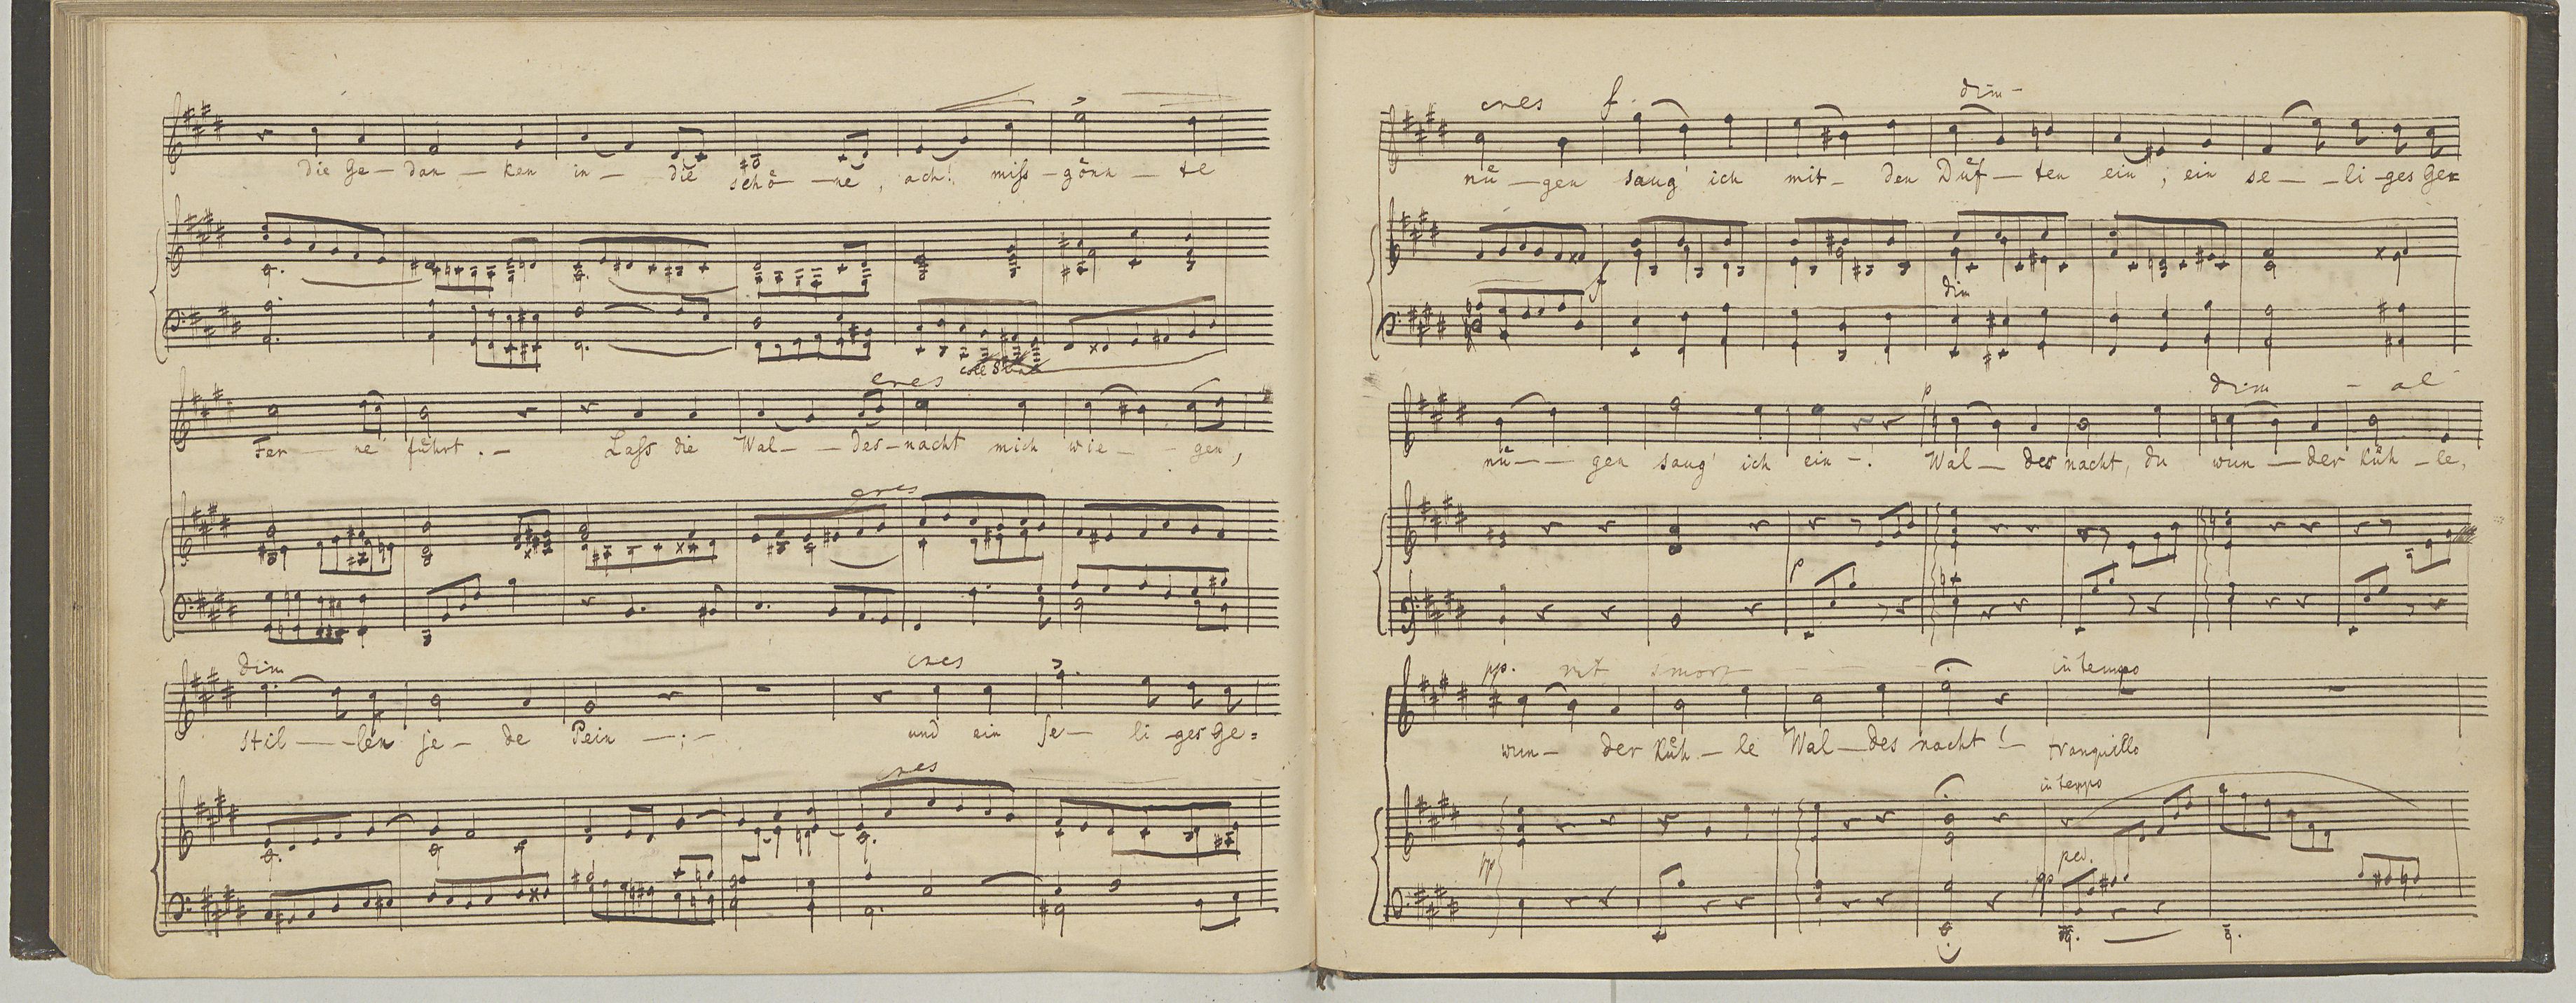 die Ge- dan - ken in - die schö - ne, ach! miſs - gönn - te
cres
Fer - ne führt. - Laſs die Wal - des-nacht mich wie - gen,
cres
dim cres
stil - len je - de Pein - ; - und ein se - li-ges Ge=
cres
cres f. dim-
nü - gen saug' ich mit - den Düf - ten ein; ein se - li-ges Ge=
f dim
dim - al
p
nü - gen saug' ich ein -! Wal - des nacht, du wun - der küh - le,
p
pp. rit smorz in tempo
wun - der küh - le Wal - des nacht! - tranquillo
in tempo
pp ped.
pp